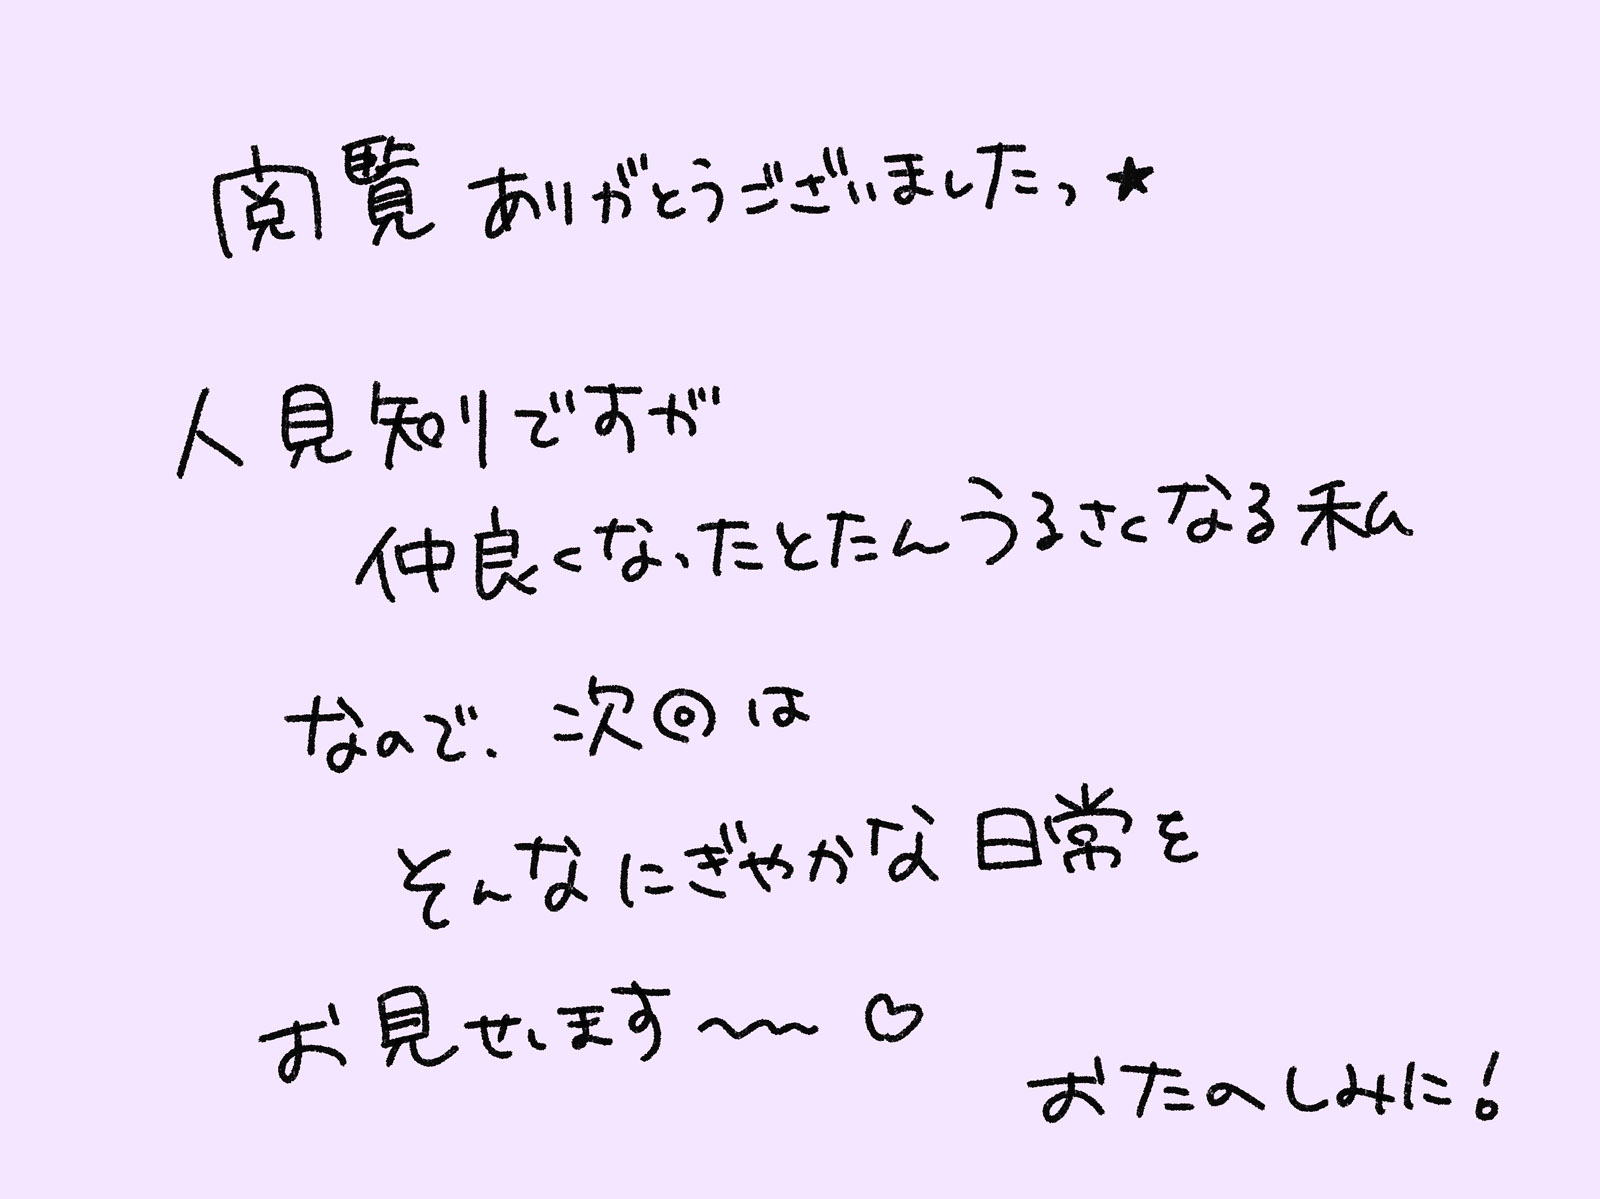 閲覧ありがとうございましたっ★
人見知りですが
仲良くなったとたんうるさくなる私
なので、次回は
そんなにぎやかな日常を
お見せします〜〜♡
おたのしみに!